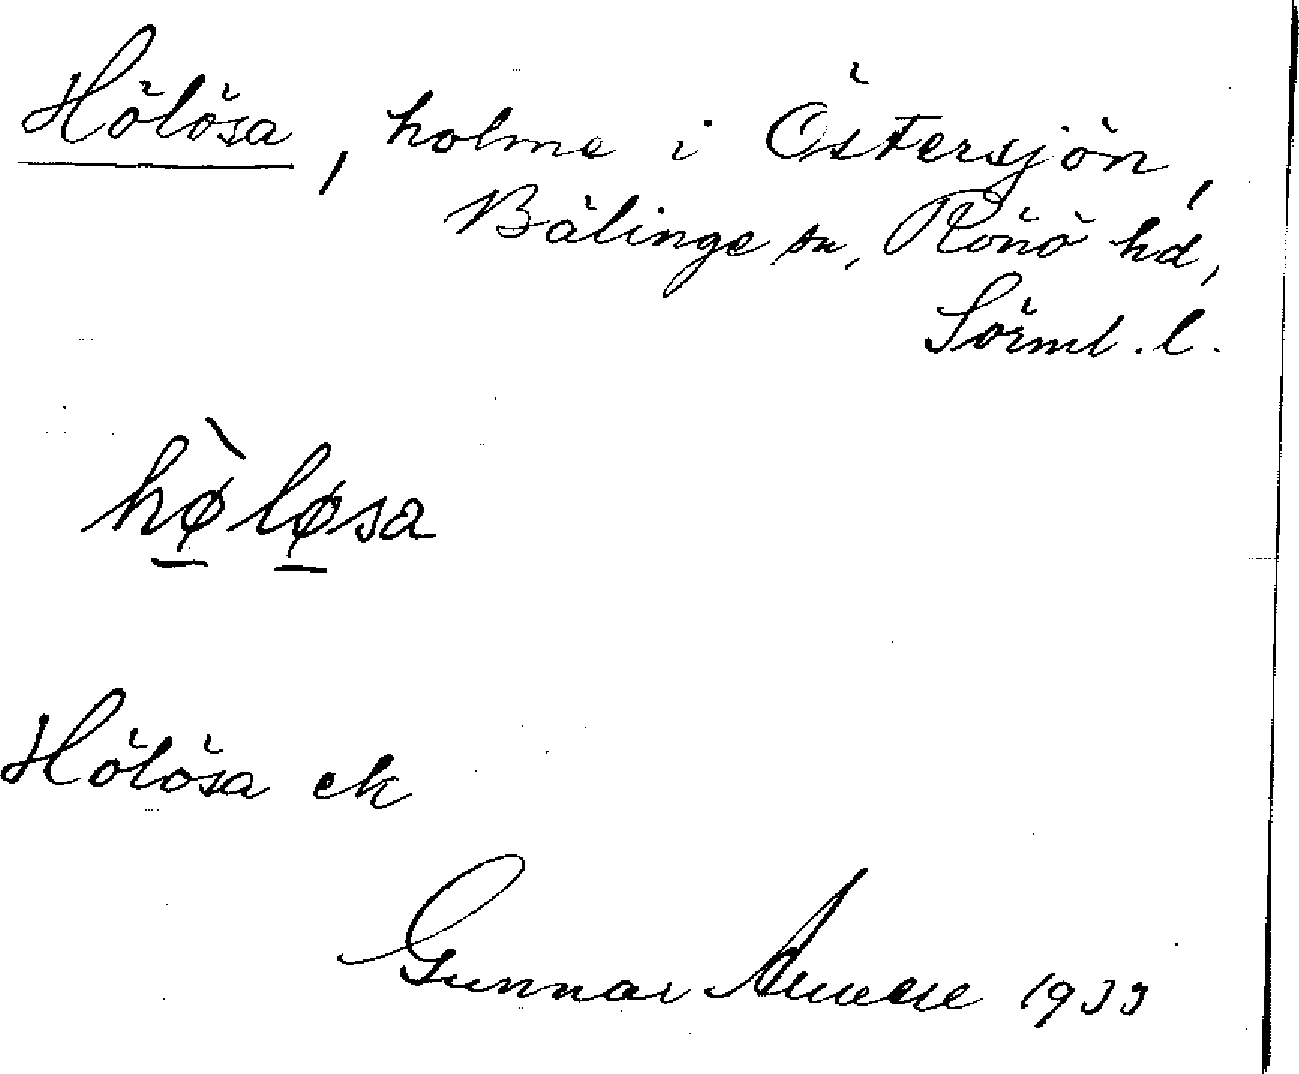 Hölösa, holme i Östersjön,
Bälinge sn, Rönö hd,
Sörml. l.
hø̀løsa
Hölösa ek
Gunnar 1933